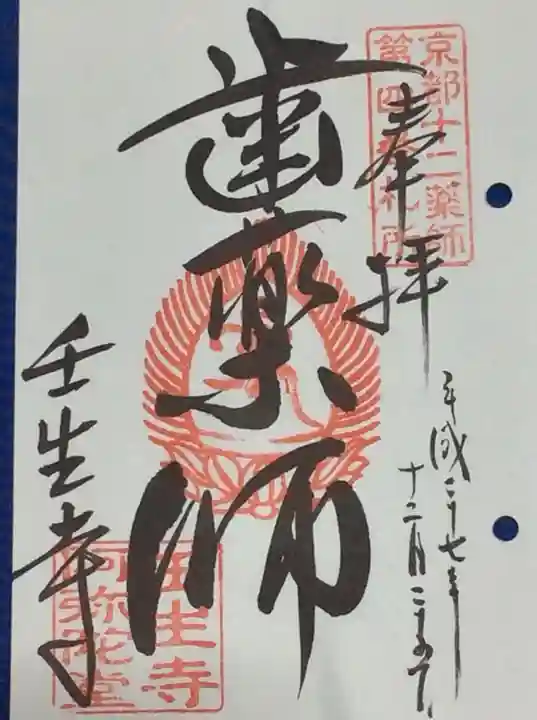 京都十二薬師
第四番札所
奉拝
平成二十七年
十二月二十六日
歯薬師
壬生寺
壬生寺
阿弥陀堂